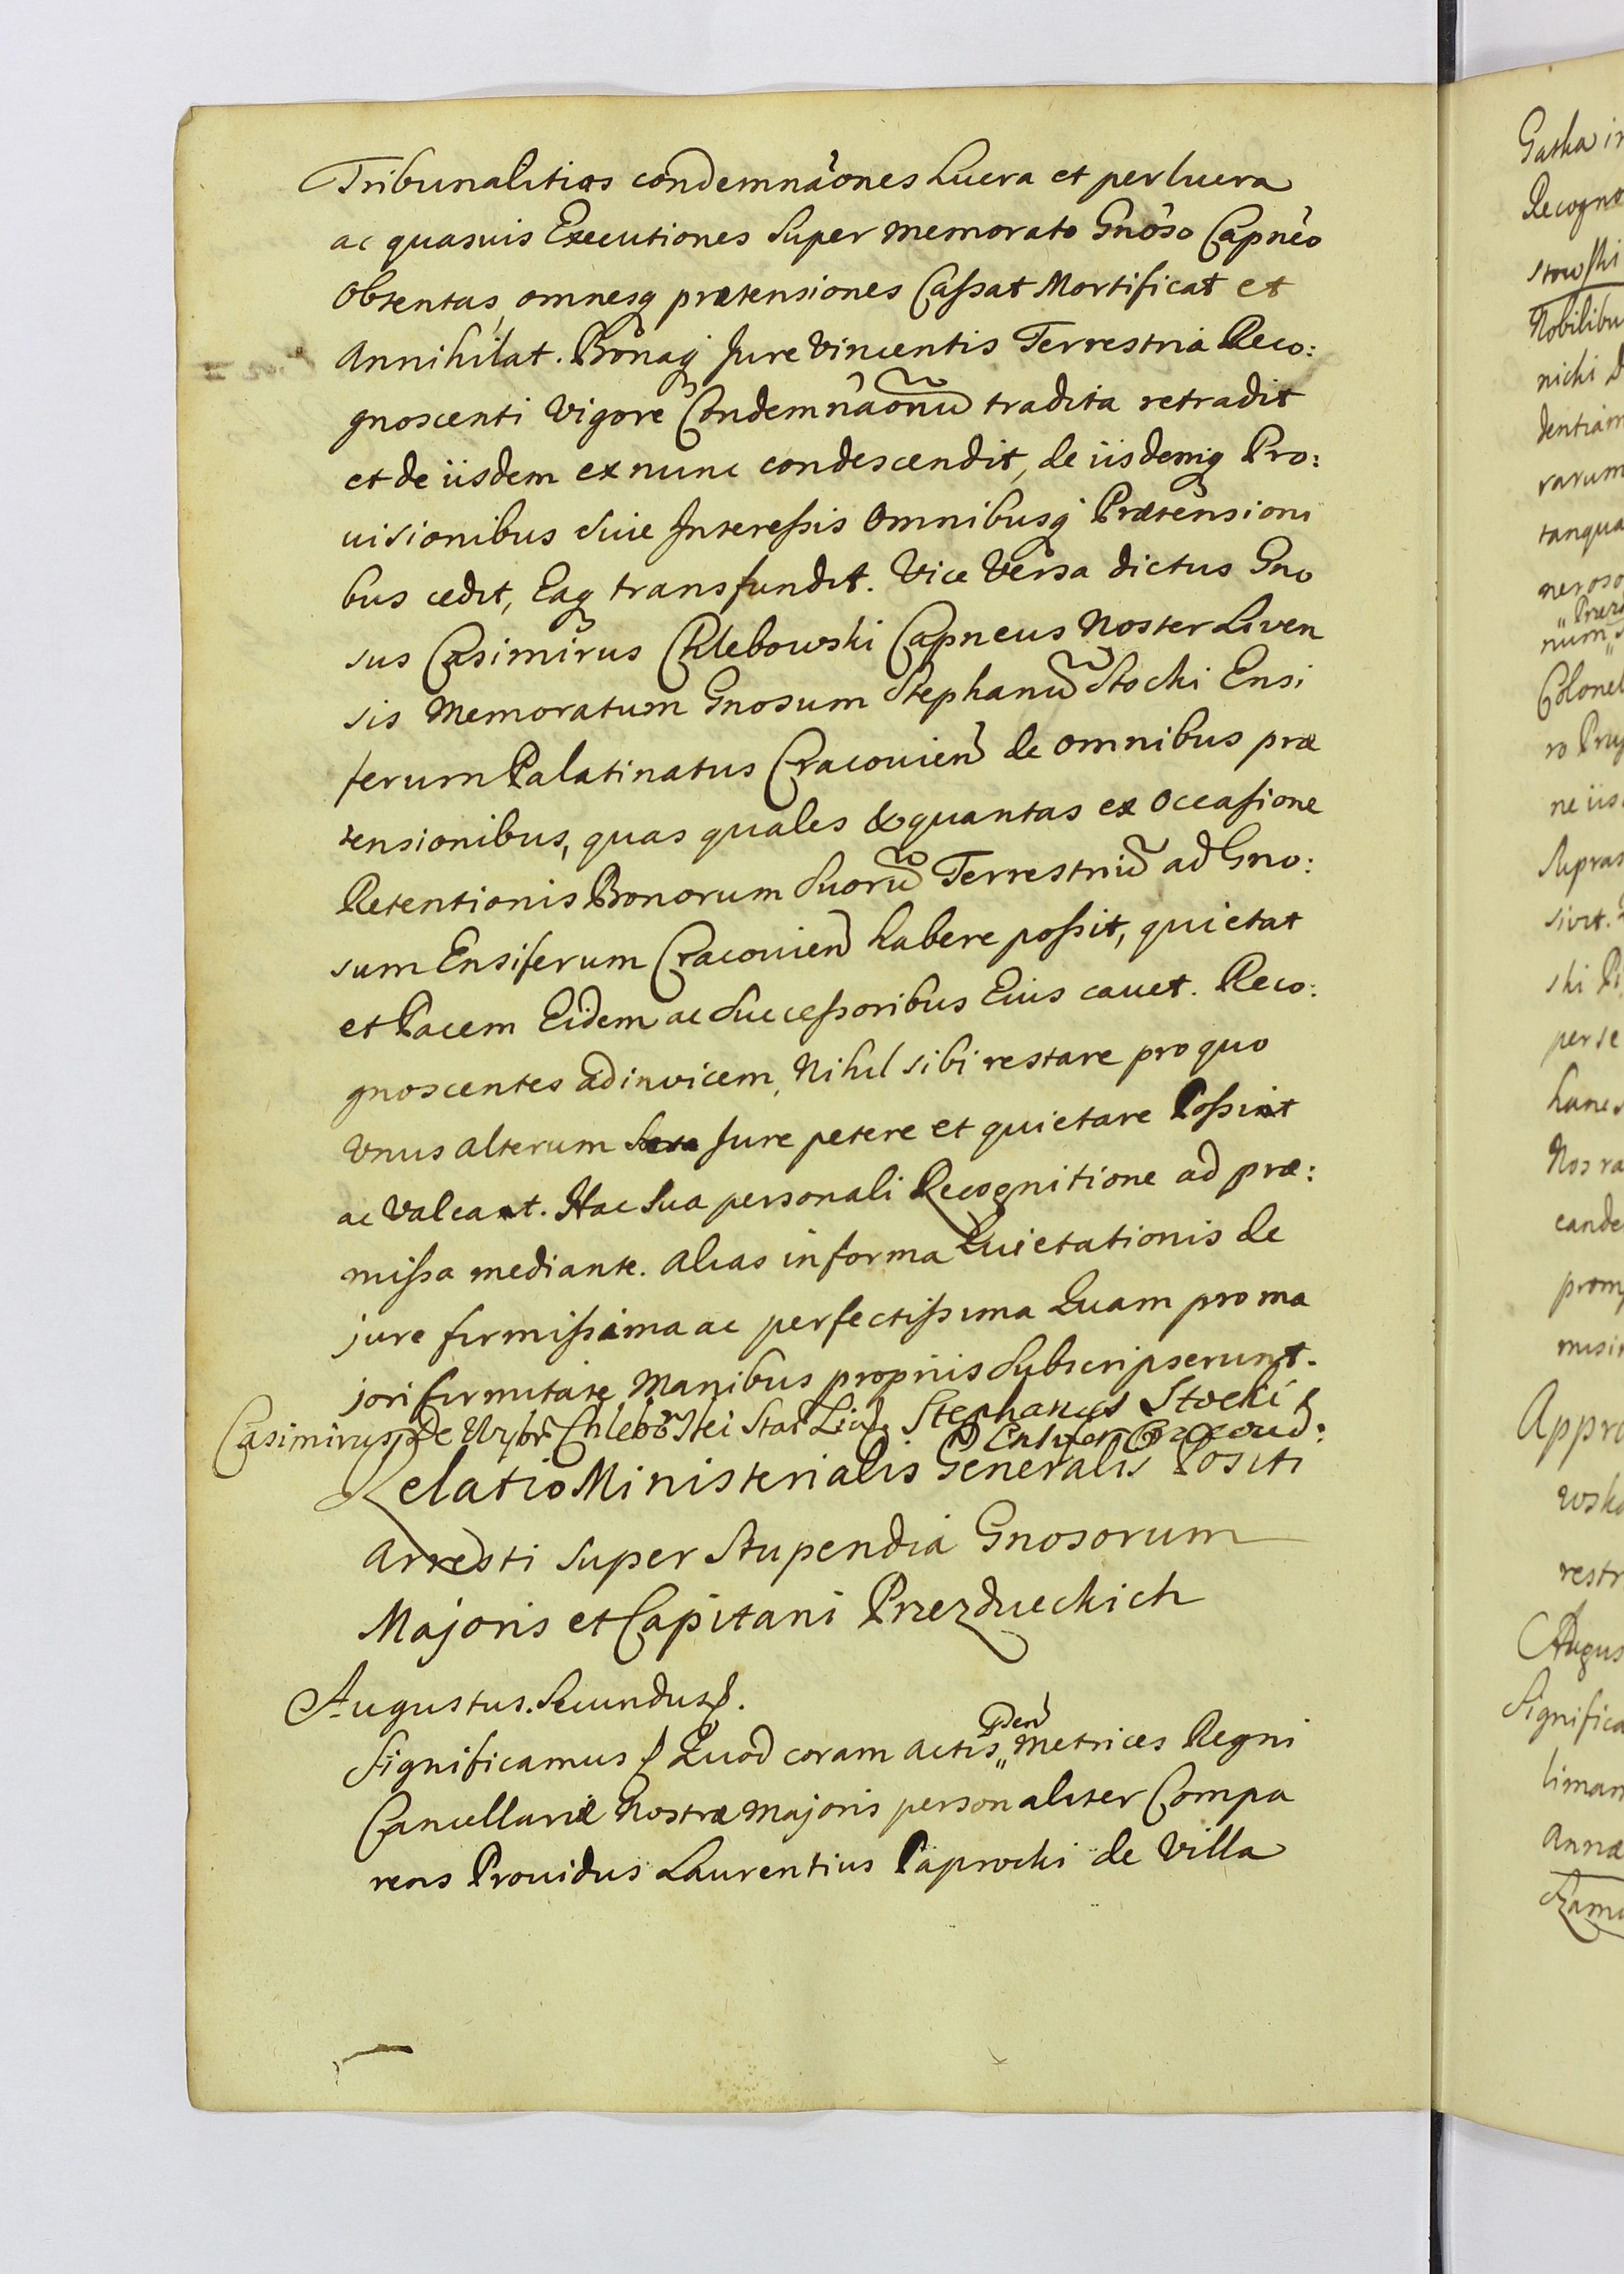 Tribunalitias condemnaônes Lucra et perlucra
ac quasuis Executiones Super memorato Gnôso Capnêo
Obtentas, omnesq prætensiones Cassat Mortificat et
Annihilat. Bonaq Jure Vincentis Terrestria Reco:
gnoscenti Vigore Condemnâonũ tradita retradit
et de iisdem ex nunc condescendit, de iisdemq Pro:
uisionibus Siue Interessis Omnibusq Prætensioni
bus cedit, Eaq transfundit. Vice Versa dictus Gno
sus Casimirus Chlebowski Capneus Noster Liven
sis Memoratum Gnosum Stephanũ Stocki Ensi
ferum Palatinatus Cracouien de omnibus præ
tensionibus, quas quales & quantas ex Occasione
Retentionis Bonorum Suorũ Terrestriũ ad Gno:
sum Ensiferum Cracouien habere possit, quietat
et Pacem Eidem ac Successoribus Eius cauet. Reco:
gnoscentes adinvicem, Nihil sibi restare pro quo
Vnus alterum Jure petere et quietare Possint
ac Valeant. Hac Sua personali Recognitione ad præ:
missa mediante. Alias in forma Quietationis de
jure firmissima ac perfectissima Quam pro ma
jori firmitate Manibus proprijs Subscripserunt.
Casimirus De Chlebowski Stephanus Stocki
Relatio Ministerialis Generalis Positi
Arresti Super Stupendia Gnosorum
Majoris et Capitani Przezdueckich
Augustus. Secundus.
Significamus Quod coram Actis „ Metrices Regni
Cancellariæ Nostræ Majoris personaliter Compa
rens Prouidus Laurentius Paprocki de Villa